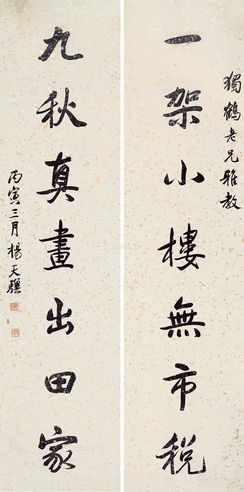 獨鶴老兄雅教
一架小樓無市稅
九秋真畫出田家
丙寅三月楊天驥